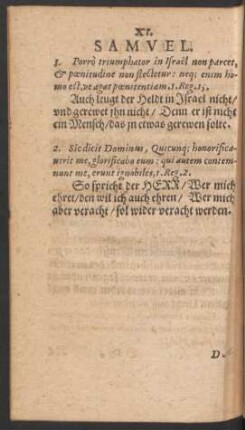 XI.
SAMVEL.
1. Porrò triumphator in Israël non parcet,
& pœnitudine non flectetur: neq; enim ho-
mo est, ut agat pœnitentiam. 1. Reg. 15.
Auch leugt der Heldt in Israel nicht/
vnd gerewet jhn nicht/ Denn er ist nicht
ein Mensch/ das jn etwas gerewen solte.
2. Sic dicit Dominus, Quicunq; honorifica-
uerit me, glorificabo eum: qui autem contem-
nunt me, erunt ignobiles, 1. Reg. 2.
So spricht der HERR/ Wer mich
ehret/ den wil ich auch ehren/ Wer mich
aber veracht/ sol wider veracht werden.
D